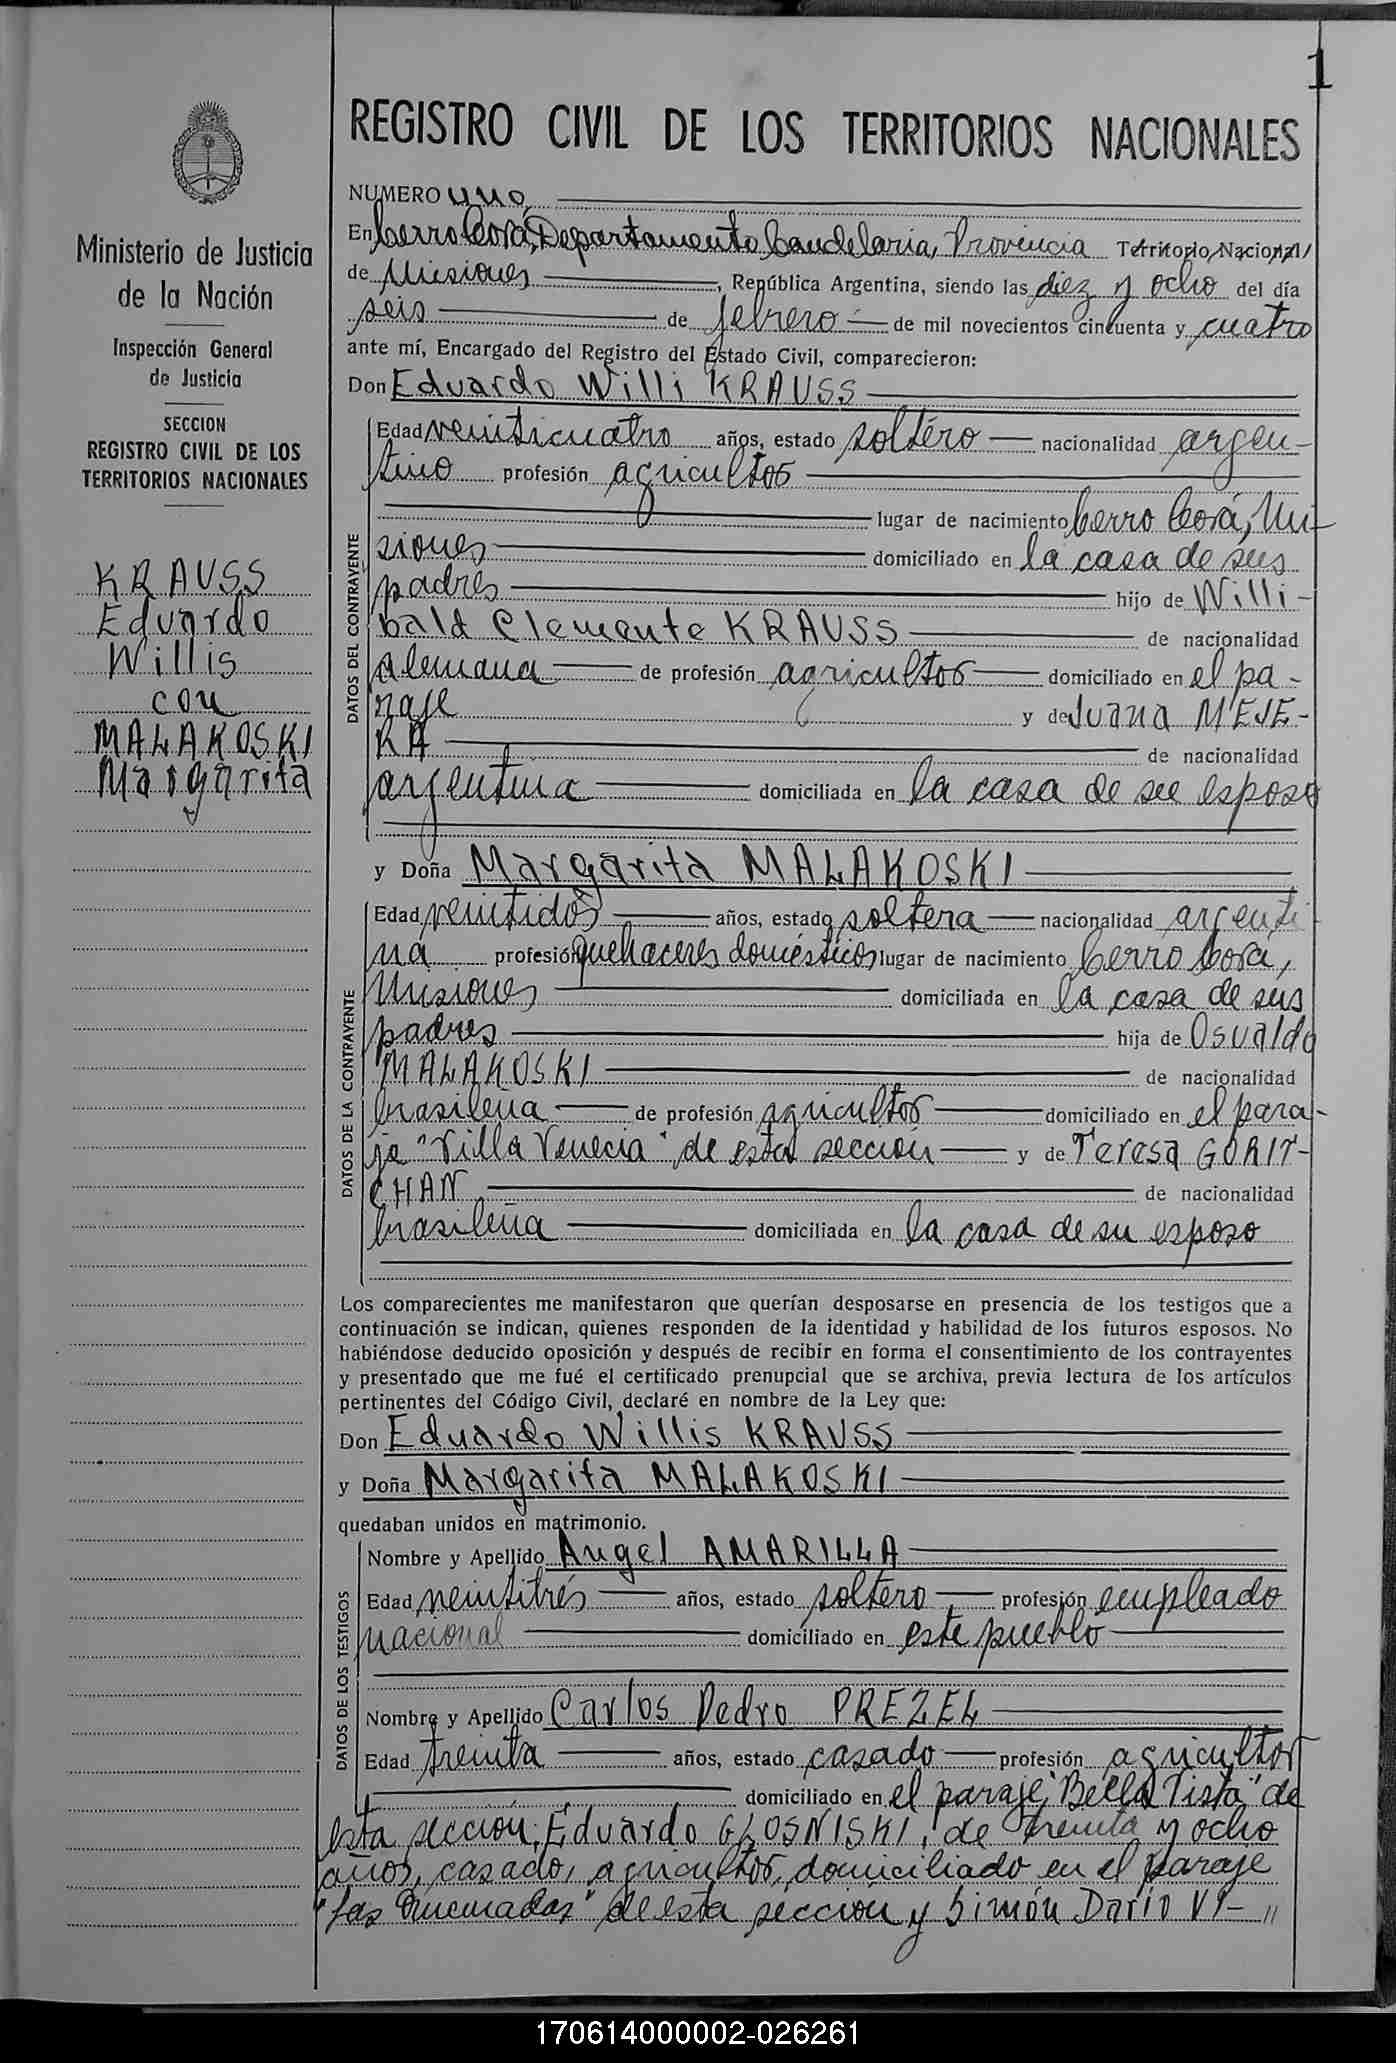 1
REGISTRO CIVIL DE LOS TERRITORIOS NACIONALES
Ministerio de Justicia
de la Nación
Inspección General
de Justicia
SECCION
REGISTRO CIVIL DE LOS
TERRITORIOS NACIONALES
KRAUSS
Eduardo
Willis
con
MALAKOSKI
Margarita
NUMERO uno
En Cerro Corá, Departamento Candelaria, Provincia Territorio Nacional
de Misiones, República Argentina, siendo las diez y ocho del día
seis de febrero de mil novecientos cincuenta y cuatro
ante mí, Encargado del Registro del Estado Civil, comparecieron:
Don Eduardo Willi KRAUSS
DATOS DEL CONTRAYENTE
Edad veinticuatro años, estado soltero nacionalidad argen-
tino profesión agricultor
lugar de nacimiento Cerro Corá, Mi-
siones domiciliado en la casa de sus
padres hijo de Willi-
bald Clemente KRAUSS de nacionalidad
alemana de profesión agricultor domiciliado en el pa-
raje y de Juana MEJE-
RA de nacionalidad
argentina domiciliada en la casa de su esposo
y Doña Margarita MALAKOSKI
DATOS DE LA CONTRAYENTE
Edad veintidos años, estado soltera nacionalidad argenti
na profesión quehaceres domésticos lugar de nacimiento Cerro Corá,
Misiones domiciliada en la casa de sus
padres hija de Osvaldo
MALAKOSKI de nacionalidad
brasileña de profesión agricultor domiciliado en el para-
je "Villa Venecia" de esta sección y de Teresa GORIT-
CHAN de nacionalidad
brasileña domiciliada en la casa de su esposo
Los comparecientes me manifestaron que querían desposarse en presencia de los testigos que a
continuación se indican, quienes responden de la identidad y habilidad de los futuros esposos. No
habiéndose deducido oposición y después de recibir en forma el consentimiento de los contrayentes
y presentado que me fué el certificado prenupcial que se archiva, previa lectura de los artículos
pertinentes del Código Civil, declaré en nombre de la Ley que:
Don Eduardo Willis KRAUSS
y Doña Margarita MALAKOSKI
quedaban unidos en matrimonio.
DATOS DE LOS TESTIGOS
Nombre y Apellido Angel AMARILLA
Edad veintitrés años, estado soltero profesión empleado
nacional domiciliado en este pueblo
Nombre y Apellido Carlos Pedro PREZEL
Edad treinta años, estado casado profesión agricultor
domiciliado en el paraje "Bella Vista" de
esta sección, Eduardo GLOSNISKI, de treinta y ocho
años, casado, agricultor, domiciliado en el paraje
"Las Quemadas" de esta sección y Simón Darío VI- "
170614000002-026261